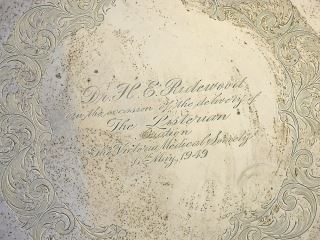 Dr. H. E. Ridewood
on the occasion of the delivery of
The Listerian
Oration
The Victoria Medical Society
May, 1949